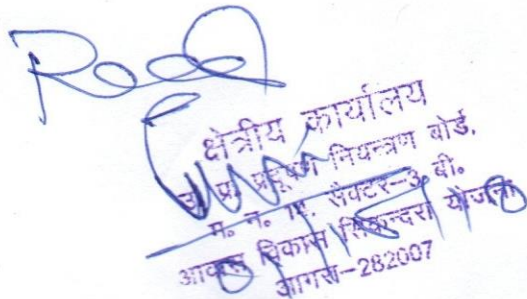 Recd
क्षेत्रीय कार्यालय
उ. प्र. प्रदूषण नियन्त्रण बोर्ड,
म. न. सैक्टर-3. बी.
आवास विकास सिकन्दरा योजना
आगरा-282007